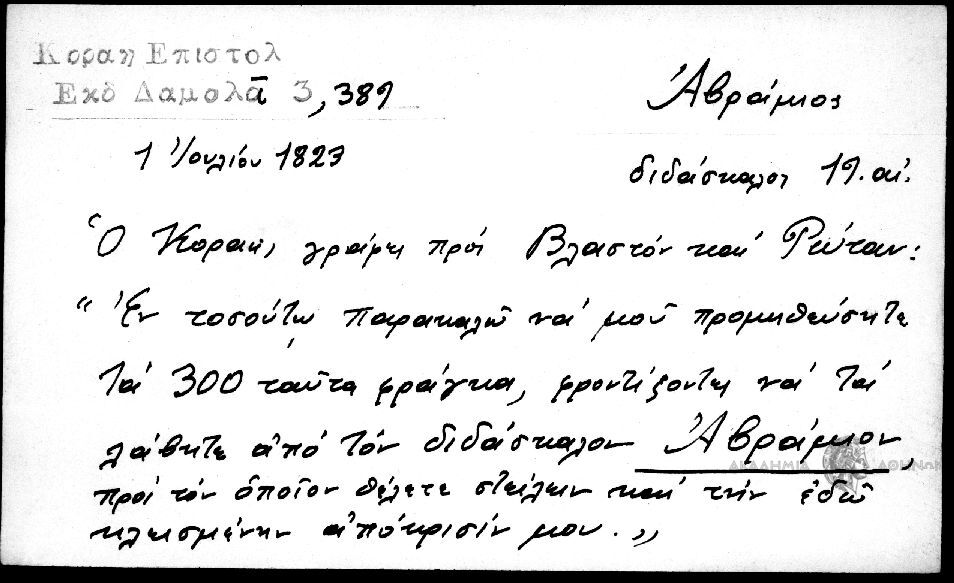 Κοραη Επιστολ
Εκδ Δαμολᾶ 3,389
Ἀβράμιος
1 Ἰουλίου 1823
διδάσκαλος 19. αἰ.
Ὁ Κοραῆς γράφει πρὸς Βλαστόν καὶ Ρώταν:
"Ἐν τοσούτῳ παρακαλῶ νά μοῦ προμηθεύσητε
τά 300 ταῦτα φράγκα, φροντίζοντες νά τά
λάβητε ἀπό τόν διδάσκαλον Ἀβράμιον,
πρός τόν ὁποῖον θέλετε στείλειν καί τήν ἐδῶ
κλεισμένην ἀπόκρισίν μου."
ΑΚΑΔΗΜΙΑ ΑΘΗΝΩΝ